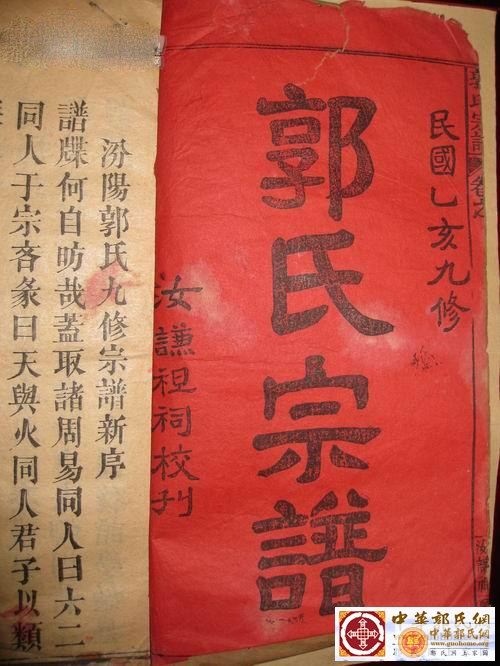 郭氏宗譜
民國乙亥九修
郭氏宗譜
汝謙祖祠校刊
汾陽郭氏九修宗譜新序
譜牒何自昉哉蓋取諸周易同人曰六二
同人于宗吝彖曰天與火同人君子以類
中華郭氏網
www.guohome.org